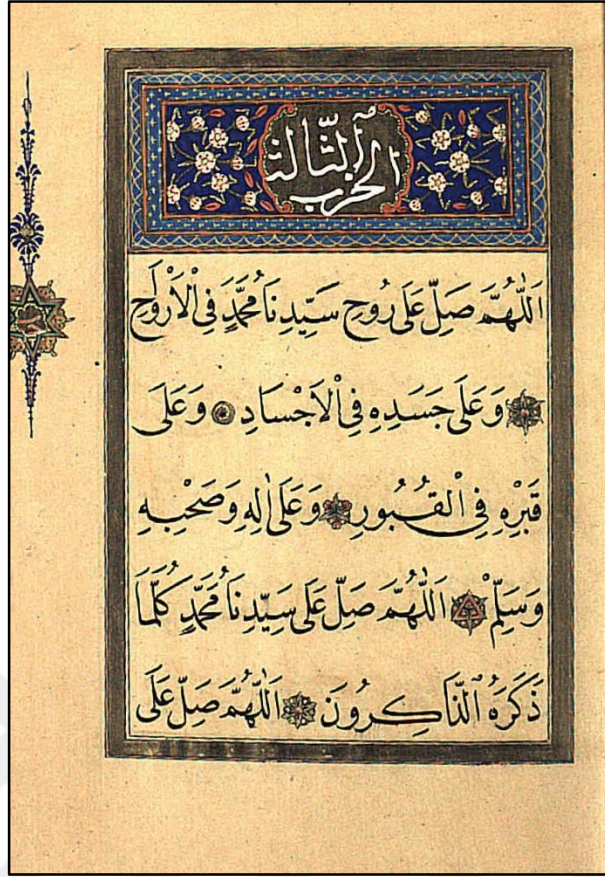 الحزب الثالث
اَللّٰهُمَّ صَلِّ عَلَى رُوحِ سَيِّدِنَا مُحَمَّدٍ فِى الْاَرْوَاحِ
وَعَلَى جَسَدِهِ فِى الْاَجْسَادِ وَعَلَى
قَبْرِهِ فِى الْقُبُورِ وَعَلَى اٰلِهِ وَصَحْبِهِ
وَسَلِّمْ اَللّٰهُمَّ صَلِّ عَلَى سَيِّدِنَا مُحَمَّدٍ كُلَّمَا
ذَكَرَهُ الذَّاكِرُونَ اَللّٰهُمَّ صَلِّ عَلَى